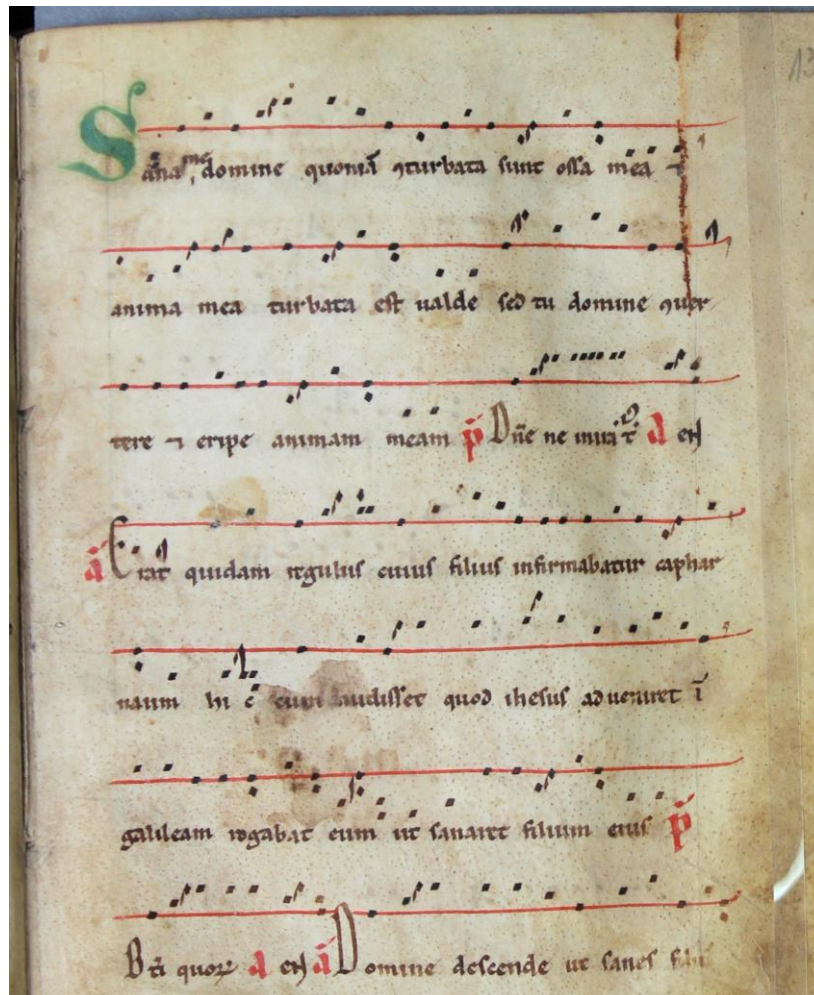 Sana me domine quoniā ꝯturbata sunt ossa mea ⁊
anima mea turbata est ualde sed tu domine ꝯuer
tere ⁊ eripe animam meam p̄ Dn̄e ne in ira t̄ a eꝉ
a Erat quidam regulus cuius filius infirmabatur caphar
naum hic cum audisset quod ihesus adueniret ī
galileam rogabat eum ut sanaret filium eius p̄
Bt̄i quoꝝ a eꝉ a Domine descende ut sanes filiū